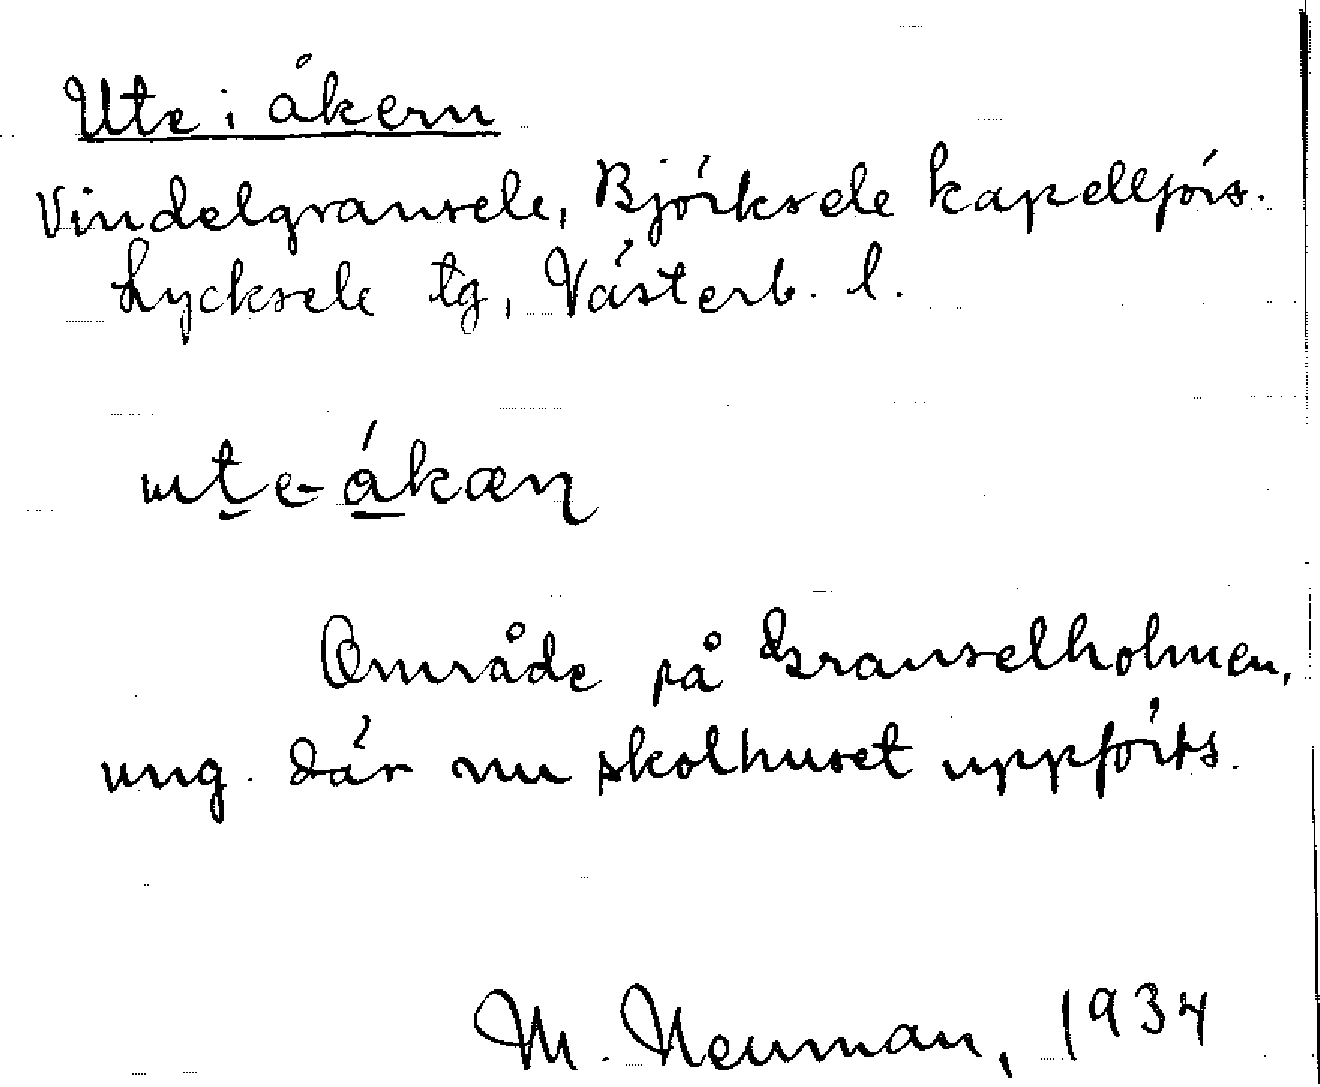 Ute i åkern
Vindelgransele, Björksele kapellförs.
Lycksele tg, Västerb. l.
ute-ákæn
Område på Granselholmen,
ung. där nu skolhuset uppförts.
M. Neuman, 1934